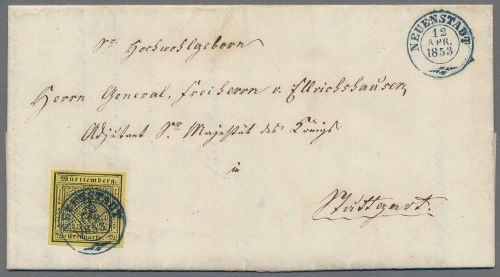 NEUENSTADT
12
APR.
1853
Sr Hochwohlgeborn
Herrn General, Freiherrn v. Ellrichshausen,
Adjutant Sr Majestät des Königs
in
Stuttgart.
Württemberg.
NEUENSTADT
Freimarke